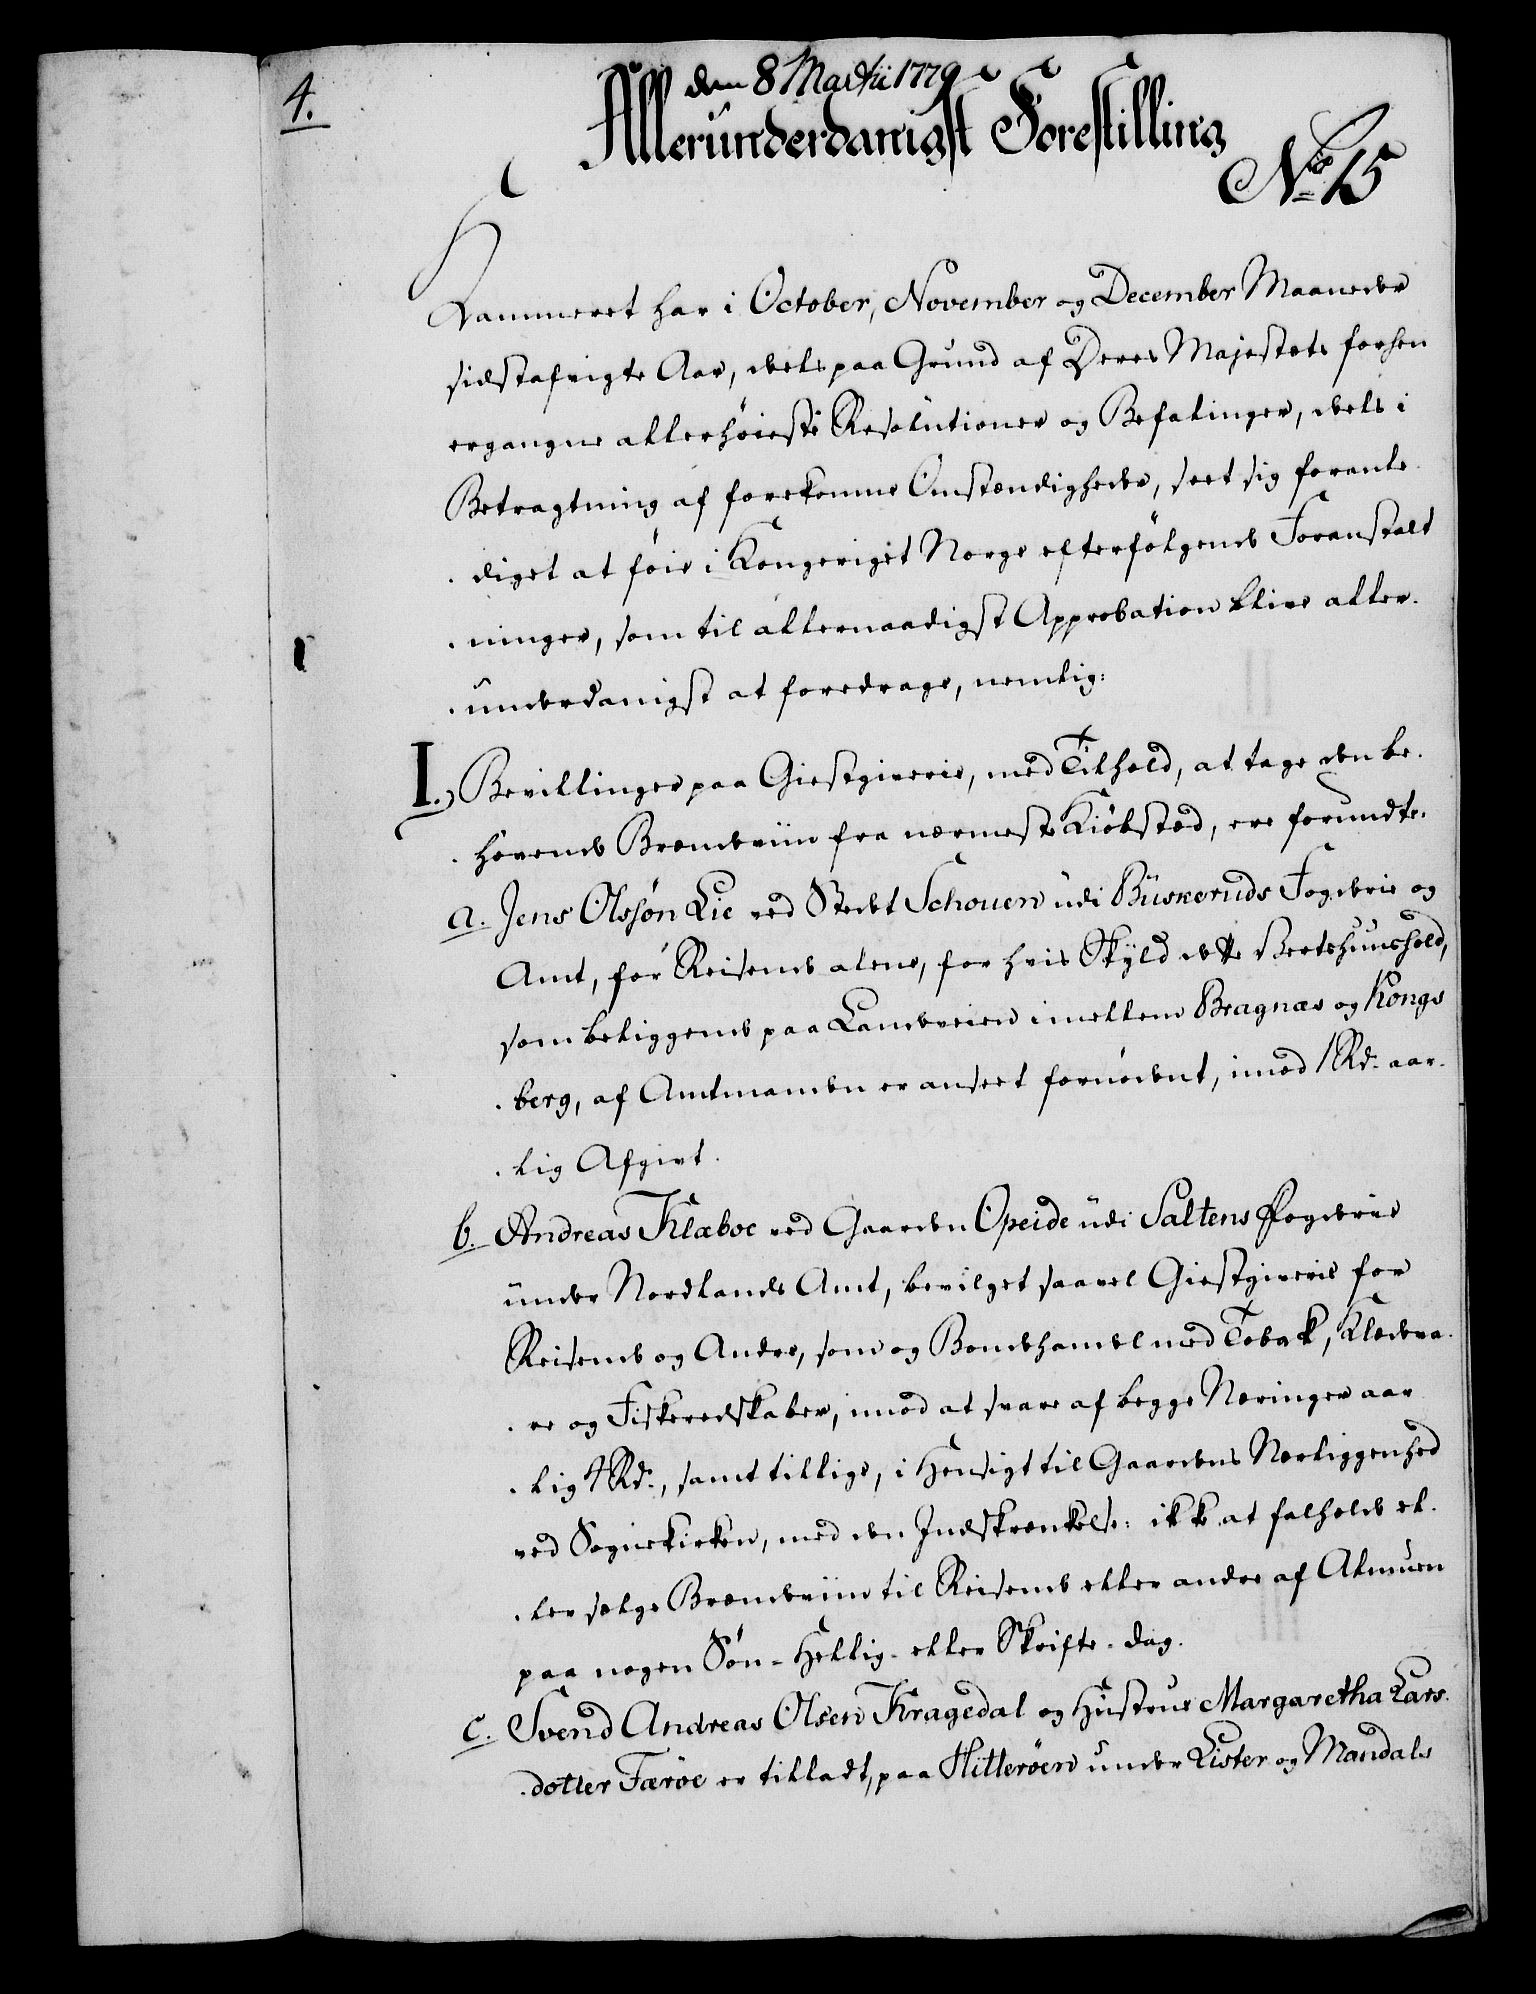 4.
den 8 Martii 1779
Allerunderdanigst Forestilling
No 15
Kammeret har i October, November og December Maaneder
sidstafvigte Aar, deels paa Grund af Deres Majestæts forhen
ergangne allerhöieste Resolutioner og Befalinger, deels i
Betragtning af forekomne Omstændigheder, seet sig foranle
diget at föie i Kongeriget Norge efterfölgende Foranstalt
ninger, som til allernaadigst Approbation blive aller-
underdanigst at foredrage, nemlig:
I.) Bevillinger paa Giestgiverie, med Tilhold, at tage den be-
hövende Brændeviin fra nærmeste Kiöbstæd, ere forundte:
a. Jens Olssön Lie ved Stedet Schouen udi Büskeruds Fogderie og
Amt, for Reisende alene, for hvis Skyld dette Vertshuushold,
som beliggende paa Landeveien imellem Bragnæs og Kongs
berg, af Amtmanden er anseet fornödent, imod 1 Rd. aar-
lig Afgivt.
b. Andreas Klæboe ved Gaarden Opeide udi Saltens Fogderie
under Nordlands Amt, bevilget saavel Giestgiverie for
Reisende og Andre, som og Bondehandel med Tobak, Klædeva-
re og Fiskeredskaber, imod at svare af begge Næringer aar
lig 4 Rd., samt tillige, i Hensigt til Gaardens Nærliggenhed
ved Sognekirken, med den Indskrænkelse: ikke at falholde el-
ler sælge Brændeviin til Reisende eller andre af Almuen
paa nogen Sön- Hellig- eller Skrifte-dag.
c. Svend Andreas Olsen Kragedal og Hustrue Margaretha Lars-
dotter Færöe er tilladt, paa Hitteröen under Lister og Mandals